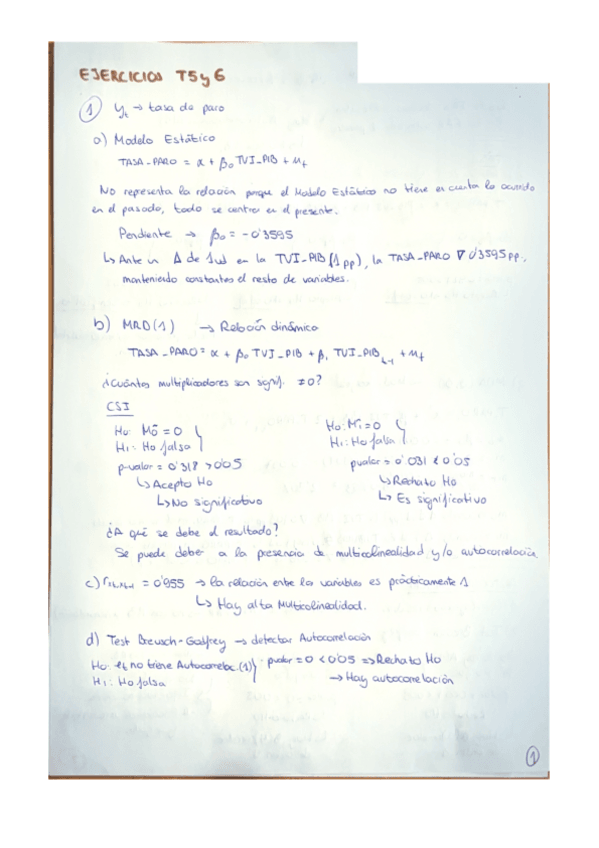 EJERCICIOS T5 y 6
1 yt → tasa de paro
a) Modelo Estático
TASA_PARO = α + β0 TVI_PIB + ut
No representa la relación porque el Modelo Estático no tiene en cuenta lo ocurrido
en el pasado, todo se centra en el presente.
Pendiente → β0 = -0'3595
↳ Ante un Δ de 1ud en la TVI_PIB (1pp), la TASA_PARO ∇ 0'3595 pp.,
manteniendo constantes el resto de variables.
b) MRD(1) → Relación dinámica
TASA_PARO = α + β0 TVI_PIB + β1 TVI_PIB t-1 + ut
¿Cuántos multiplicadores son signif. ≠0?
CSI
H0: M0 = 0 H0: M1 = 0
H1: H0 falsa H1: H0 falsa
p-valor = 0'318 > 0'05 pvalor = 0'031 < 0'05
↳ Acepto H0 ↳ Rechazo H0
↳ No significativo ↳ Es significativo
¿A qué se debe el resultado?
Se puede deber a la presencia de multicolinealidad y/o autocorrelación
c) = 0'955 → la relación entre las variables es prácticamente 1
↳ Hay alta Multicolinealidad.
d) Test Breusch-Godfrey → detectar Autocorrelación
H0: et no tiene Autocorrelac.(1) pvalor = 0 < 0'05 ⇒ Rechazo H0
H1: H0 falsa → Hay autocorrelación
1